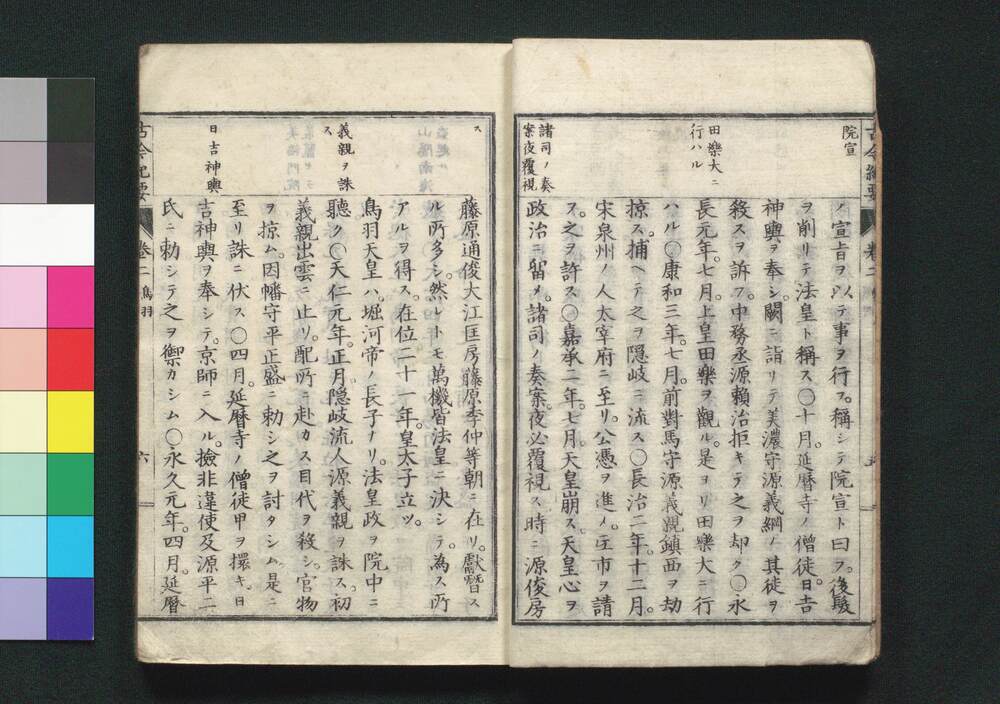 院宣
田樂大ニ
行ハル
諸司ノ奏
案夜覆視
ノ宣旨ヲ以テ事ヲ行フ。稱シテ院宣ト曰フ。後髮
ヲ削リテ法皇ト稱ス〇十月。延曆寺ノ僧徒。日吉
神輿ヲ奉シ。闕ニ詣リテ美濃守源義綱ノ其徒ヲ
殺スヲ訴フ。中務丞源賴治拒キテ之ヲ却ク〇永
長元年。七月。上皇田樂ヲ觀ル。是ヨリ田樂大ニ行
ハル〇康和三年。七月。前對馬守源義親鎮西ヲ劫
掠ス。捕ヘテ之ヲ隱岐ニ流ス〇長治二年。十二月。
宋泉州ノ人太宰府ニ至リ。公憑ヲ進ノ。互市ヲ請
ス。之ヲ許ス〇嘉承二年。七月。天皇崩ス。天皇心ヲ
政治ニ留メ。諸司ノ奏案。夜必覆視ス時ニ源俊房
古今紀要
卷二
ス
義親ヲ誅
ス
日吉神輿
藤原通俊大江匡房藤原季仲等朝ニ在リ。獻替ス
ル所多シ。然レトモ萬機皆法皇ニ決シテ。為ス所
アルヲ得ス。在位二十一年。皇太子立ツ。
鳥羽天皇ハ。堀河帝ノ長子ナリ。法皇政ヲ院中ニ
聽ク〇天仁元年。正月。隱岐流人源義親ヲ誅ス。初
義親出雲ニ止リ。配所ニ赴カス目代ヲ殺シ。官物
ヲ掠ム。因幡守平正盛ニ勅シ之ヲ討タシム。是ニ
至リ誅ニ伏ス〇四月。延曆寺ノ僧徒甲ヲ擐キ。日
吉神輿ヲ奉シテ。京師ニ入ル。撿非違使及源平二
氏ニ勅シテ之ヲ禦カシム〇永久元年。四月。延曆
古今紀要
卷二 鳥羽
六